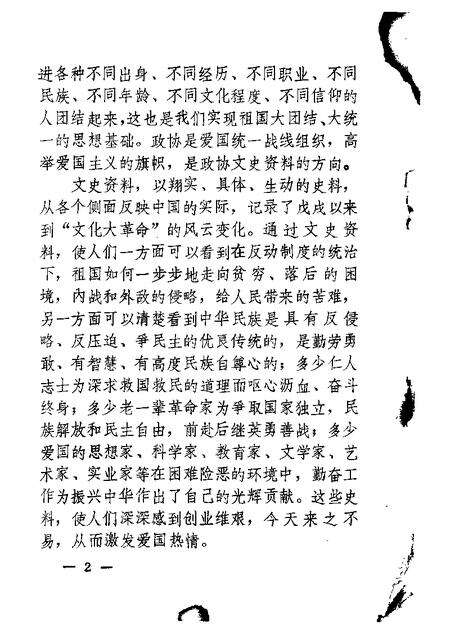 进各种不同出身、不同经历、不同职业、不同
民族、不同年龄、不同文化程度、不同信仰的
人团结起来,这也是我们实现祖国大团结、大统
一的思想基础。政协是爱国统一战线组织，高
举爱国主义的旗帜，是政协文史资料的方向。
文史资料，以翔实、具体、生动的史料，
从各个侧面反映中国的实际，记录了戊戌以来
到“文化大革命”的风云变化。通过文史资
料，使人们一方面可以看到在反动制度的统治
下，祖国如何一步步地走向贫穷、落后的困
境，内战和外敌的侵略，给人民带来的苦难，
另一方面可以清楚看到中华民族是具有反侵
略、反压迫、争民主的优良传统的，是勤劳勇
敢、有智慧、有高度民族自尊心的；多少仁人
志士为深求救国救民的道理而呕心沥血、奋斗
终身；多少老一辈革命家为争取国家独立，民
族解放和民主自由，前赴后继英勇善战；多少
爱国的思想家、科学家、教育家、文学家、艺
术家、实业家等在困难险恶的环境中，勤奋工
作为振兴中华作出了自己的光辉贡献。这些史
料，使人们深深感到创业维艰，今天来之不
易，从而激发爱国热情。
— 2 —